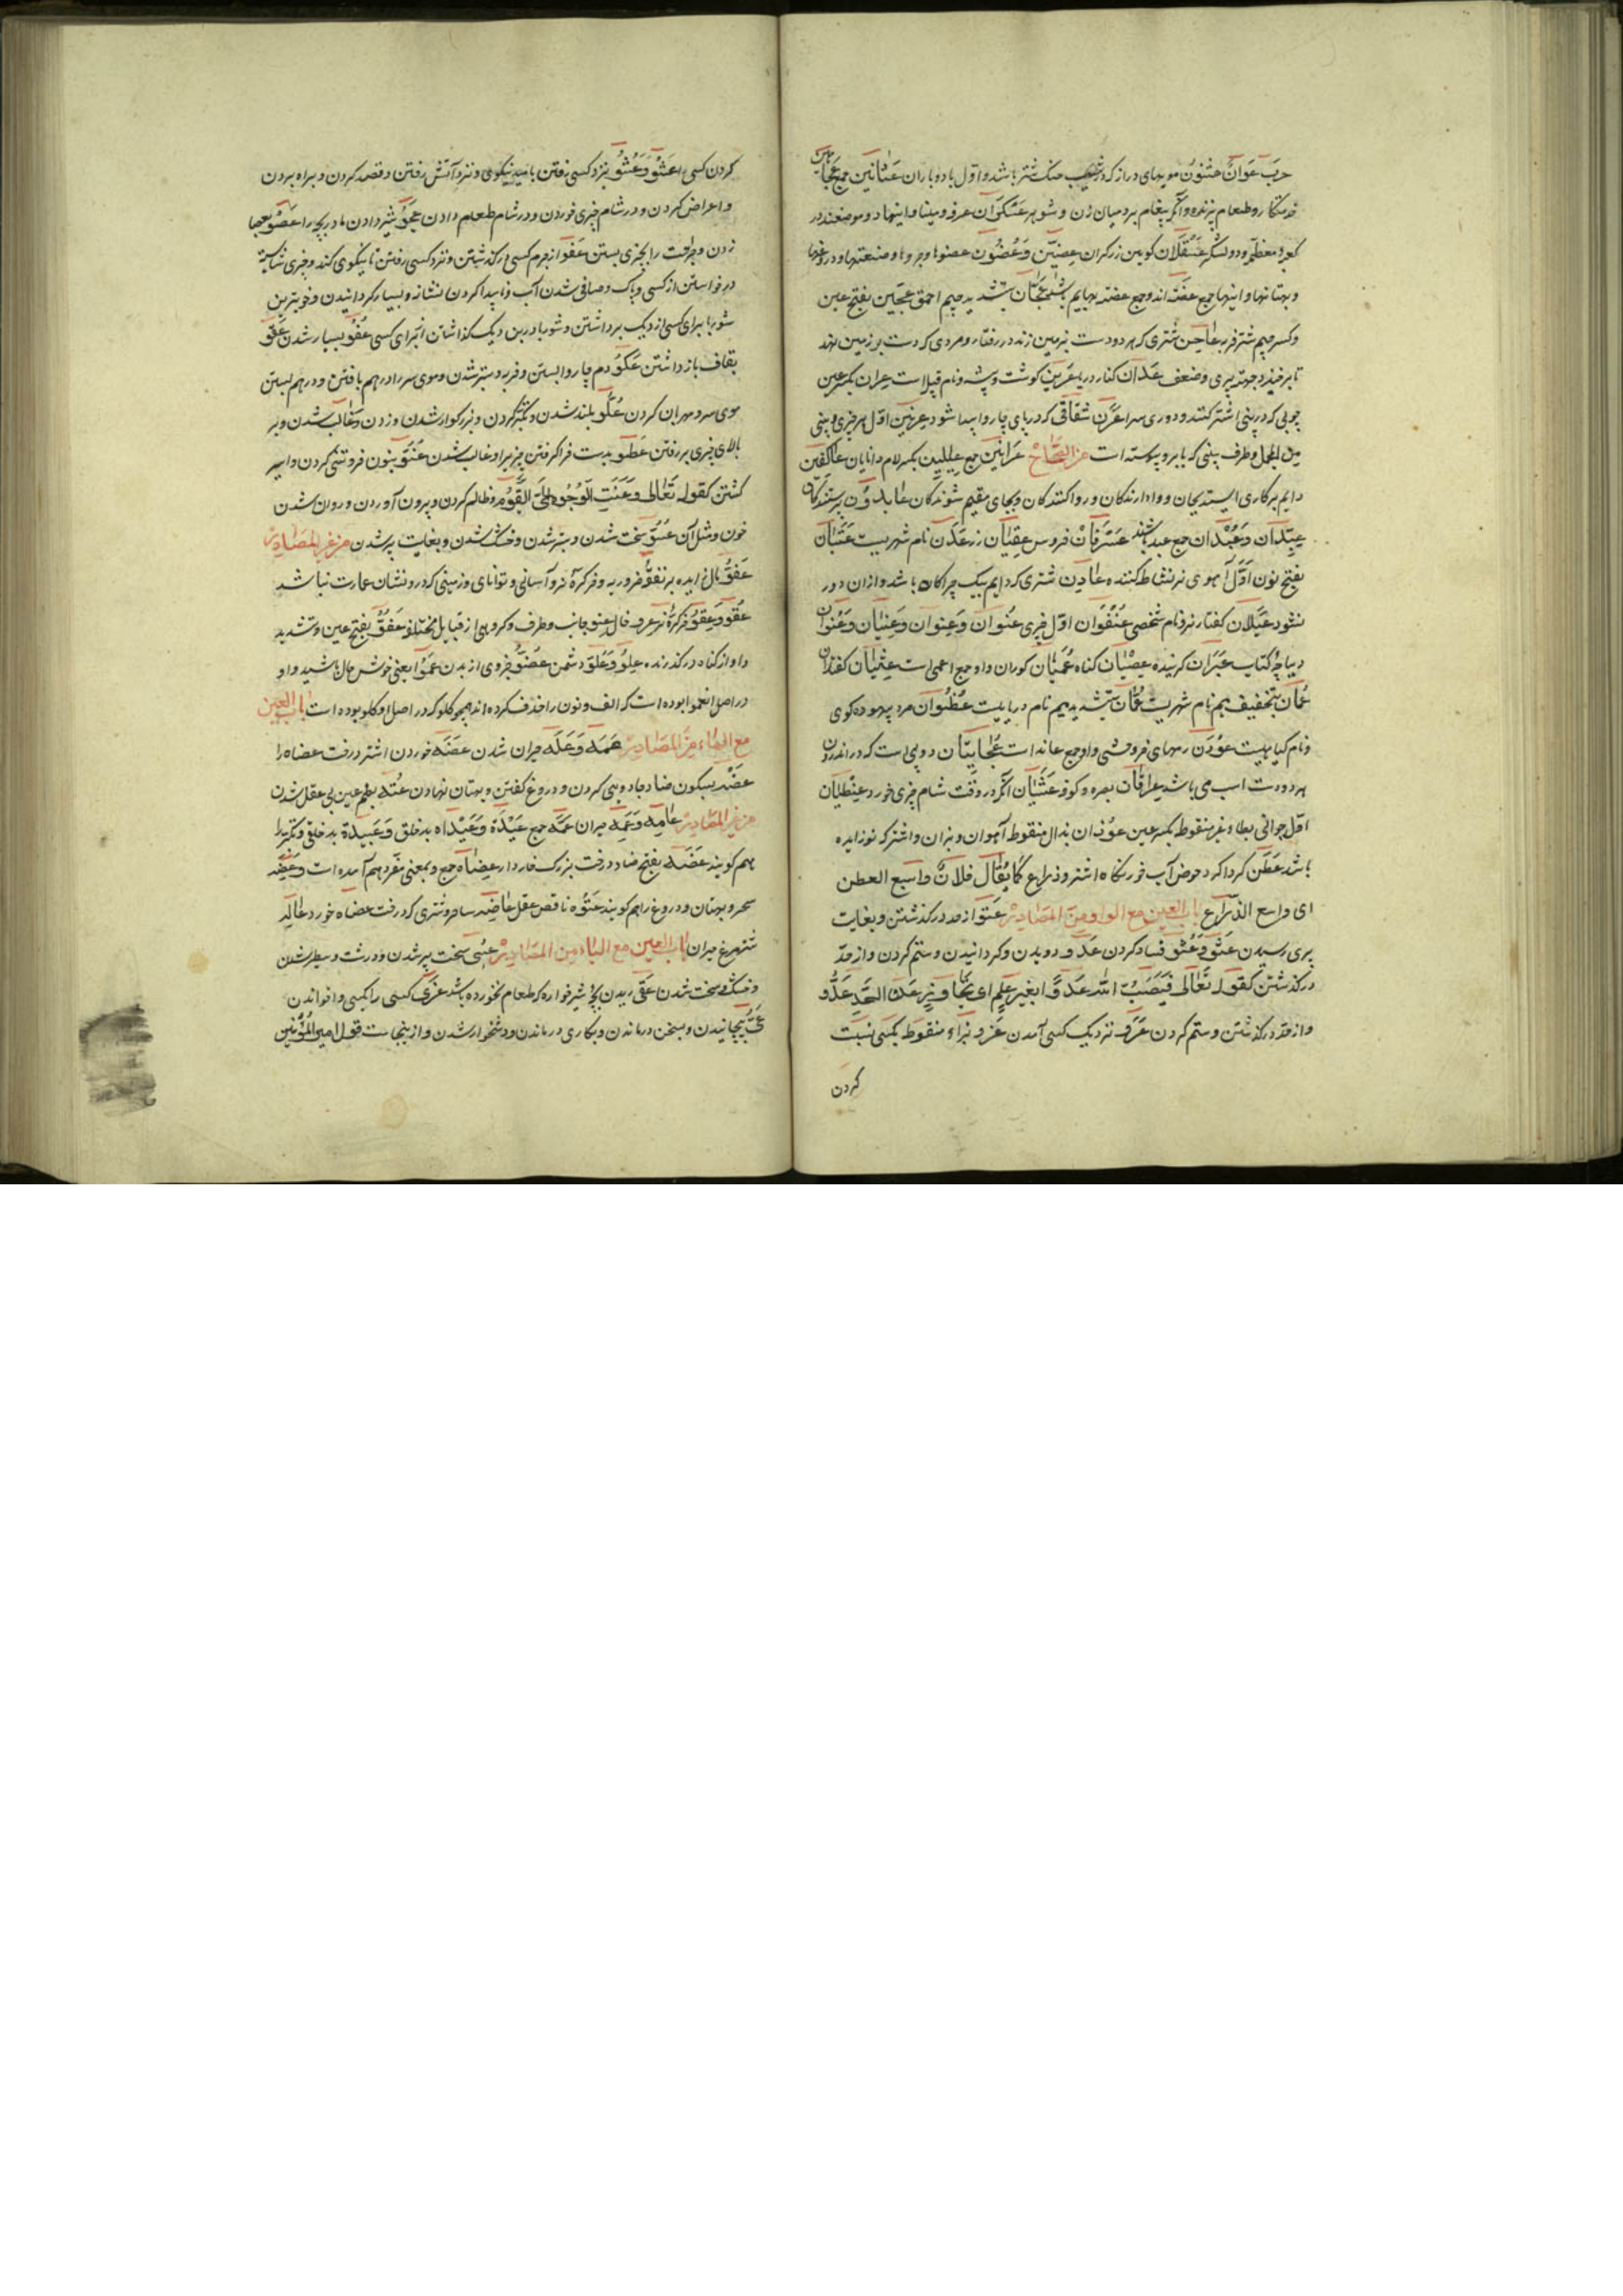 حرب عَوَانٌ عثنون مویهای دراز که در شیب حنک شتر باشد و اول باد و باران عَثانین جمع عجاهن
خدمتکار و طعام پزنده و آنکه پیغام برد میان زن و شوهر عسکران عرفه و مینا و اینها دو موضعند در
کعبه معظمه و دو لشکر عَسْقَلان کوهین زر کران عِضین وَعُضون عضوها و جزوها و صنعتها و دروغها
و بهتانها و اینها جمع عضه اند و جمع عضه بهایم باشد عجّان بتشدید جیم احمق عَجین بفتح عین
و کسر جیم شتر فربه عاجن شتری که هر دو دست بزمین زند در رفتار و مردی که دست بر زمین نهد
تا برخیزد بجهة پیری و ضعف عَدان کنار دریا عَرین کوشت و بیشه و نام قبیله است عِران بکسر عین
چوبی که در بینی اشتر کنند و دوری سرا عَرَن شقاقی که در پای چاروا پیدا شود عِرنین اول هر چیزی و بینی
مِن المجمل و طرف بینی که بابرو پیوسته است من الصحاح عَرانین جمع عِلیین بکسر لام دانایان عاکفین
دایم بر کاری ایستدیجان و وادارندکان و رواکنندکان و بجای مقیم شوندکان عابدون پرستندکان
عِبِدّان وَعُبْدان جمع عبد باشند عُسْرُفان خروس عِقیان زر عَدَن نام شهریست عَنَبان
بفتح نون اَوّل آهوی نر نشاط کننده عادِن شتری که دایم بیک چراکاه باشد و ازان دور
نشود عَیلان کفتار نر و نام شخصی عُنْفُوان اوّل چیزی عُنوان وَعِنوان وَعِنیان وَعُنوان
دیباچه کتاب عَبَران کرینده عِصْیان کناه عُمیان کوران و او جمع اعمی است عِثیان کفتاران
عُمان بتخفیف میم نام شهریست عُمّان بتشدید میم نام دریاییست عُظْوان مرد بیهوده کوی
و نام کیاهیست عُوْن رمهای خر وحشی و او جمع عانه است عُجایتان دو پی است که در اندرون
هر دو دست اسب می باشد عِراقان بصره و کوفه عَشْیان آنکه در وقت شام چیزی خورد عِنْظیان
اول جوانی بطاء غیر منقوط بکسر عین عوذان بذال منقوط آهوان و بزان و اشتر که نوزاییده
باشد عَطَن کرداکرد حوض آب خور نکاه اشتر و ذراع کما یُقال فلانٌ واسع العطن
ای واسع الذراع باب العین مع الواو من المصادر عُتو از حد درکذشتن و بغایت
پیری رسیدن عَثْو وَعُثو فساد کردن عَدْو دویدن و کردانیدن و ستم کردن و از حدّ
درکذشتن کقوله تعالی فَیَسُبُّوا الله عَدوًا بغیر علم ای تجاوز عن الحد عُدُو
و از حد درکذشتن و ستم کردن عَرْو نزدیک کسی آمدن عَزْو بزاء منقوطه بکسی نسبت
کردن
کردن کسی را عَشْو وَعُشو نزد کسی رفتن بامید نیکوی و نزد آتش رفتن و قصد کردن و براه بردن
و اعراض کردن و در شام چیزی خوردن و در شام طعام دادن عَجْو شیر دادن مادر بچه را عَصْو بعصا
زدن و جراحت را بچیزی بستن عَفو از جرم کسی درکذشتن و نزد کسی رفتن تا نیکوی کند و چیزی شایسته
درخواستن از کسی و پاک و صافی شدن آب و ناپیدا کردن نشانه و بسیار کردانیدن و خوبترین
شوربا برای کسی از دیک برداشتن و شوربا در بن دیک کذاشتن از برای کسی عُفو بسیار شدن عَقْو
بقاف بازداشتن عَکْو دم چاروا بستن و فربه و ستبر شدن و موی سر را درهم بافتن و درهم بستن
موی سر و مهربان کردن عُلُو بلند شدن و تکبر کردن و بزرکوار شدن و زدن و غالب شدن و بر
بالای چیزی بر رفتن عَطْو بدست فرا کرفتن چیز را و غالب شدن عُنُو بنون فروتنی کردن و اسیر
کشتن کقوله تعالی وَعَنَتِ الوُجُوه لِلحَیّ القَیّوم و ظالم کردن و بیرون آوردن و روان شدن
خون و مثل آن عُسُو سخت شدن و ستبر شدن و خشک شدن و بغایت پیر شدن من غیر المصادر
عَفْو مال زیاده بر نفقه و خروره و خرکره نر و آسانی و توانای و زمینی که درو نشان عمارت نباشد
عُفو وَعِفو خرکره نر عرو خال عِنو جانب و طرف و کروهی از قبایل مختلفه عَفُوّ بفتح عین و تشدید
واو از کناه درکذرنده عِلْو وَعُلْو دشمن عضو جزوی از بدن عَمُوا یعنی خوش حال باشید و او
در اصل انعموا بوده است که الف و نون را حذف کرده اند همچو کلوا که در اصل اوکلوا بوده است باب العین
مع الهاء من المصادر عَمَه وَعَلَه حیران شدن عَضَه خوردن اشتر درخت عضاه را
عَضْه بسکون ضاد جادویی کردن و دروغ کفتن و بهتان نهادن عُتْه بضم عین بی عقل شدن
من غیر المصادر عامِه وَعَمِه حیران عُمَّه جمع عَیْدَه وَعَیْداه بدخلق وَعَبیدة بدخلقی و تکبر را
هم کویند عَضَه بفتح ضاد درخت بزرک خاردار عِضاه جمع و بمعنی مفرد هم آمده است وعِضَه
سحر و بهتان و دروغ را هم کویند عَتُوه ناقص عقل عاضِه ساحر و شتری که درخت عضاه خورد عالِه
شترمرغ حیران باب العین مع الیاء من المصادر عِتی سخت پیر شدن و درشت و سطبر شدن
و خشک و سخت شدن عَقْی ریدن بچه شیرخواره که طعام نخورده باشد عَزْی کسی را بکسی واخواندن
عَیّ پیچانیدن و بسخن درماندن و بکاری درماندن و دشخوار شدن و ازینجاست قول امیر المؤمنین